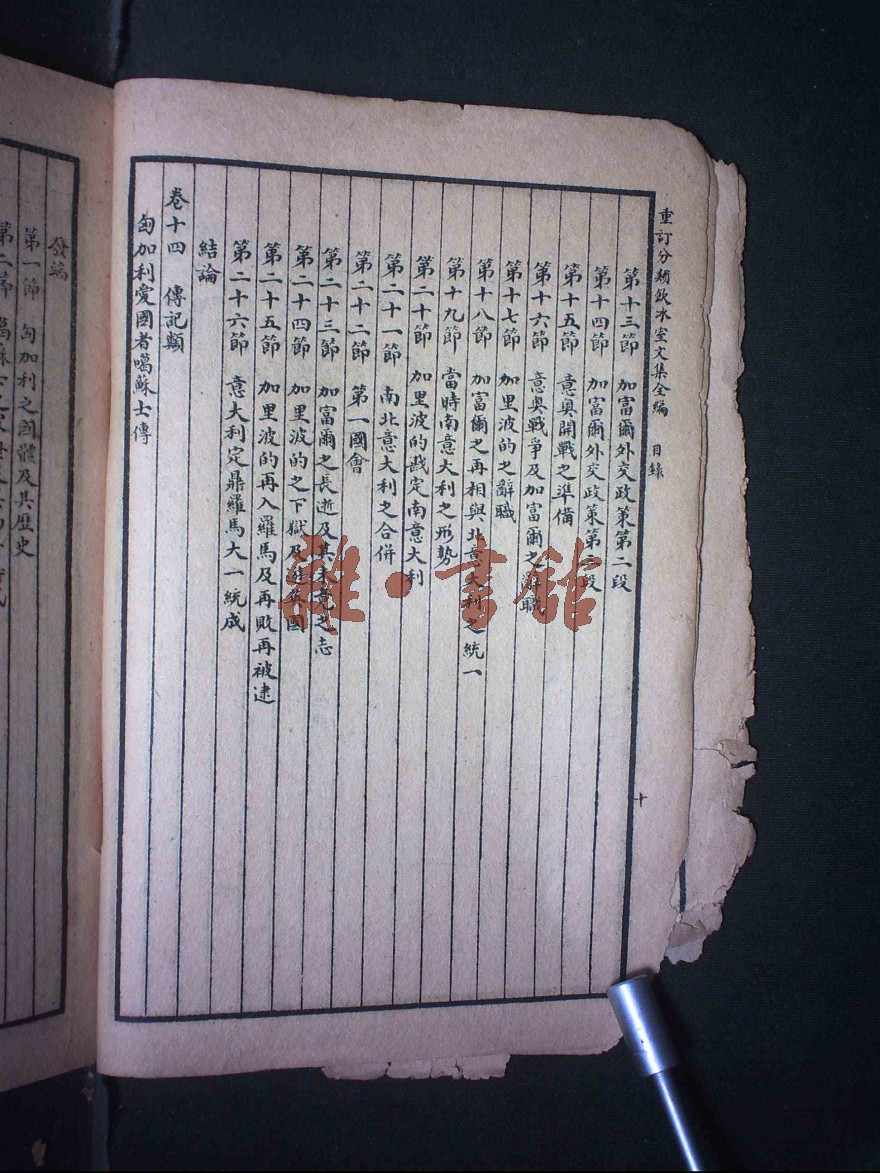 重訂分類飲冰室文集全編 目錄
十
第十三節 加富爾外交政策第二段
第十四節 加富爾外交政策第三段
第十五節 意奧開戰之準備
第十六節 意奧戰爭及加富爾之辭職
第十七節 加里波的之辭職
第十八節 加富爾之再相與北意大利之統一
第十九節 當時南意大利之形勢
第二十節 加里波的戡定南意大利
第二十一節 南北意大利之合併
第二十二節 第一國會
第二十三節 加富爾之長逝及其未竟之志
第二十四節 加里波的之下獄及遊英國
第二十五節 加里波的再入羅馬及再敗再被逮
第二十六節 意大利定鼎羅馬大一統成
結論
卷十四 傳記類
匈加利愛國者噶蘇士傳
發端
第一節 匈加利之國體及其歷史
第二節 噶蘇士之
雜·書館